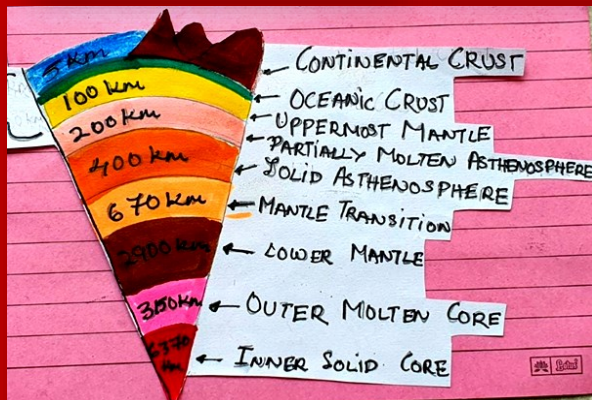 5 km
100 km
200 km
400 km
670 km
2900 km
3150 km
6370 km
CONTINENTAL CRUST
OCEANIC CRUST
UPPERMOST MANTLE
PARTIALLY MOLTEN ASTHENOSPHERE
SOLID ASTHENOSPHERE
MANTLE TRANSITION
LOWER MANTLE
OUTER MOLTEN CORE
INNER SOLID CORE